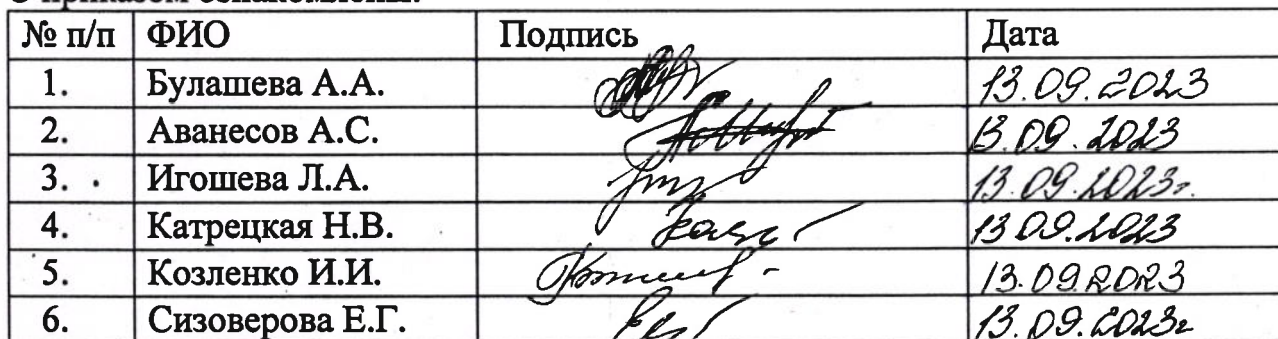 С приказом ознакомлены:
№ п/п ФИО Подпись Дата
1. Булашева А.А. 13.09.2023
2. Аванесов А.С. 13.09.2023
3. Игошева Л.А. 13.09.2023г.
4. Катрецкая Н.В. 13.09.2023
5. Козленко И.И. 13.09.2023
6. Сизоверова Е.Г. 13.09.2023г